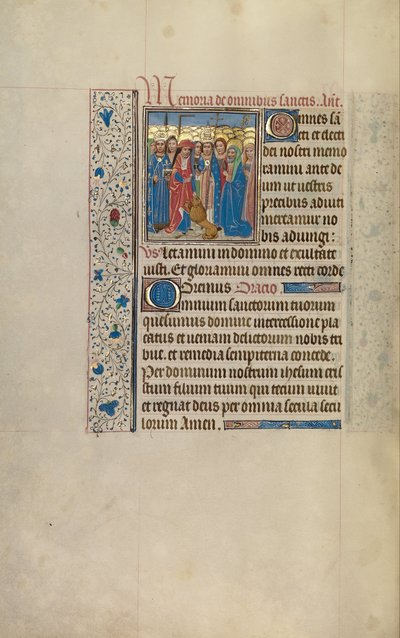 Memoria de omnibus sanctis. Ant.
Omnes sā
cti et electi
dei nostri memo
ramini ante de
um ut vestris
precibus adiuti
mereamur vo
bis adiungi:
vs Letamini in domino et exultate
iusti. Et gloriamini omnes recti corde
Oremus Oracio
Omnium sanctorum tuorum
quesumus domine intercessione pla
catus et veniam delictorum nobis tri
bue. et remedia sempiterna concede.
Per dominum nostrum ihesum cris
stum filium tuum qui tecum vivit
et regnat deus per omnia secula secu
lorum Amen.